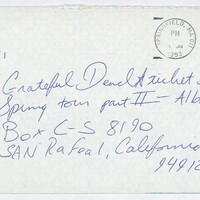 SPRINGFIELD, MA 011
PM
1993
Grateful Dead ticket
Spring tour part II - Alb
Box C-S 8190
SAN Rafael, California
94912